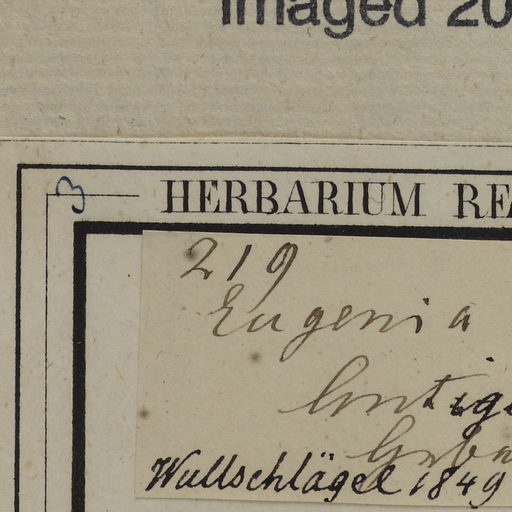 Imaged 20
3
HERBARIUM RE
219
Eugenia
Antig
Wullschlägel 1849